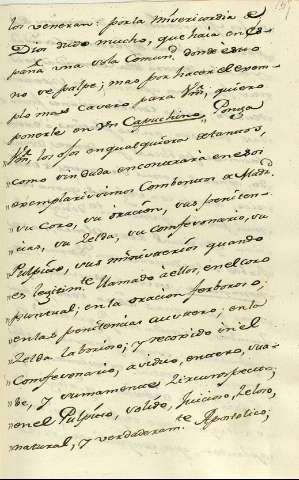 los veneran. por la Misericordia de
Dios dudo mucho, que haia en Es-
paña una sola Comun.d donde esto
no se palpe; mas por hacer el exem-
plo mas casero para Vm, quiero
ponerle en un Capuchino. Ponga
Vm, los ojos en qualquiera de tantos,
"como sin duda encontrará en esos
"exemplarissimos Combentos de Mad.d
"su Coro, su oracion, sus peniten-
"cias, su Zelda, su confesonario, su
"Pulpito, sus ministerios quando
"es legitim.te llamado a ellos, en el coro
"puntual; en la oracion ferboroso;
"en las penitencias austero; en la
"Zelda laborioso; y recojido en el
"Comfesonario, asiduo, entero, sua-
"be, y sumamente Zircunspecto;
"en el Pulpito, solido, juicioso, Zeloso,
"natural, y verdaderam.te Apostolico;